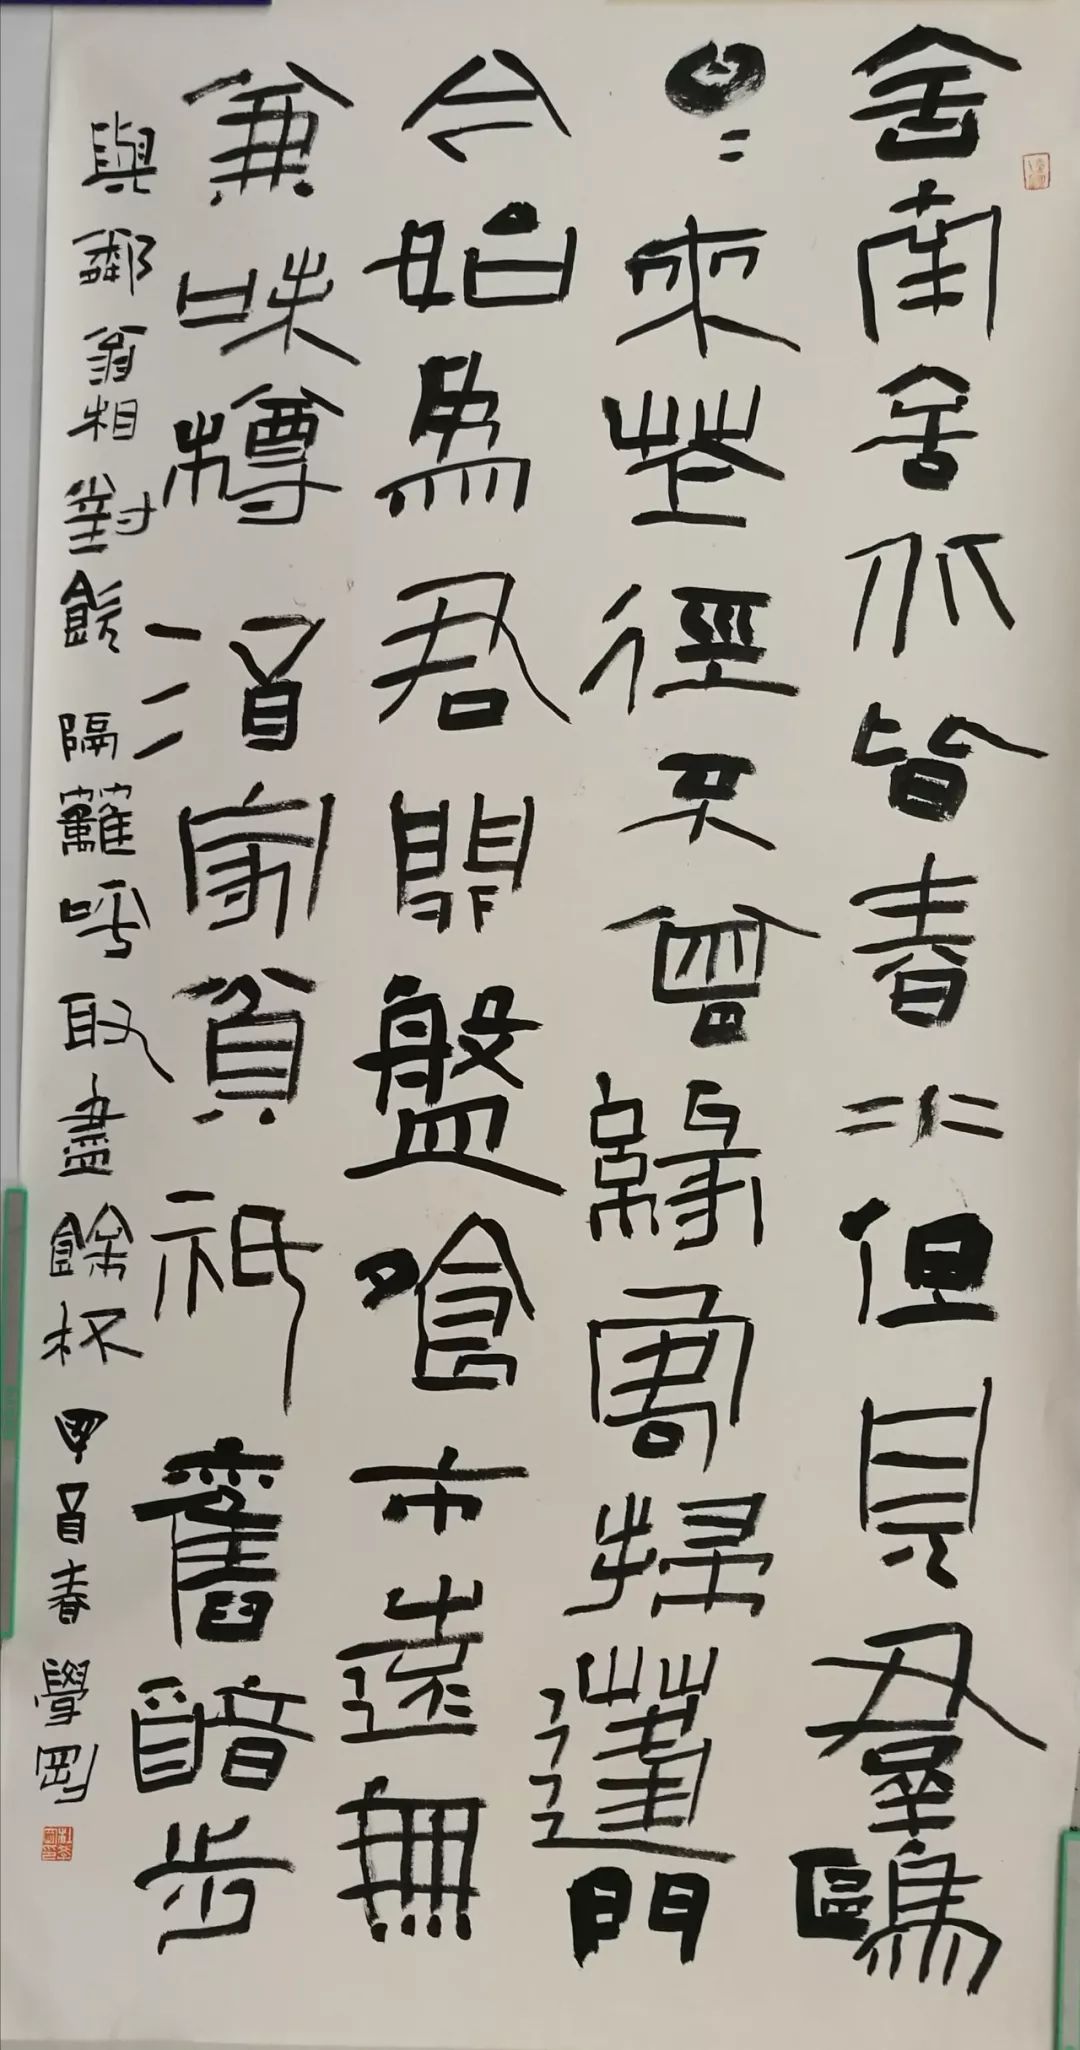 舍南舍北皆春水但見羣鷗
日〻來花徑不曾緣客掃蓬門
今始為君開盤喰市遠無
兼味樽酒家貧祇舊醅步
與鄰翁相對飲隔籬呼取盡餘杯 甲春 學剛